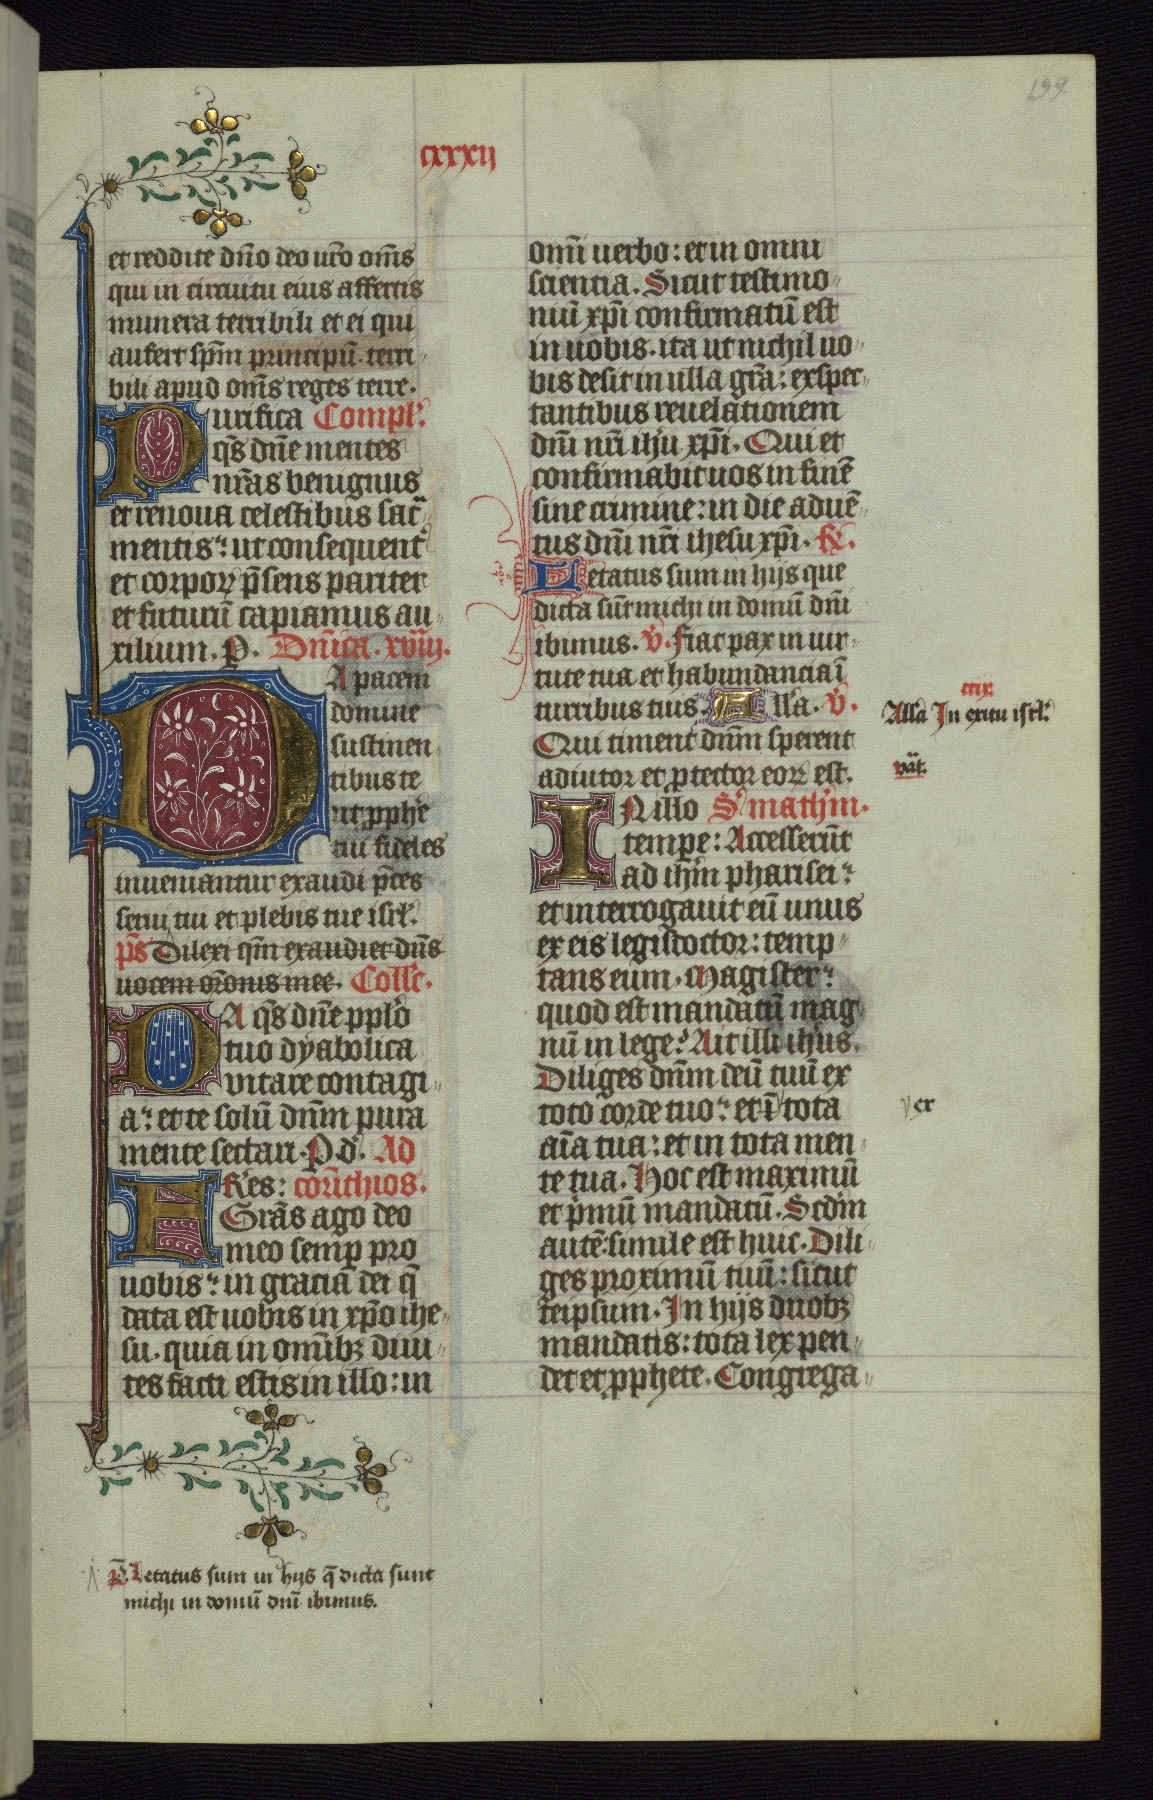 199
cxxxij
et reddite dño deo ur̃o om̃s
qui in circuitu eius affertis
munera terribili et ei qui
aufert sp̃m principũ. terri
bili apud om̃s reges terre.
Purifica Compl̃.
q̃s dñe mentes
nr̃as benignus
et renoua celestibus sac̃
mentis: ut consequent̃
et corpoꝝ p̃sens pariter
et futurũ capiamus au
xilium. ꝑ. Dñica. xviij.
DA pacem
domine
sustinen
tibus te
ut ꝓphe
tui fideles
inueniantur exaudi p̃ces
serui tui et plebis tue isrl̃.
p̃s Dilexi qm̃ exaudiet dñs
uocem or̃onis mee. Coll̃c.
DA q̃s dñe pplõ
tuo dyabolica
uitare contagi
a: et te solũ dñm pura
mente sectari. P. d̃. Ad
Fr̃es: corinthios.
Gr̃as ago deo
meo semꝑ pro
uobis: in gratia dei q̃
data est uobis in xp̃o ihe
su. quia in omĩbꝫ diui
tes facti estis in illo: in
ꝑ̃. Letatus sum in hijs q̃ dicta sunt
michi in domũ dñi ibimus.
omĩ uerbo: et in omni
scientia. Sicut testimo
niũ xp̃i confirmatũ est
in uobis. ita ut nichil uo
bis desit in ulla gr̃a: exspec
tantibus reuelationem
dñi nr̃i ihũ xp̃i. Qui et
confirmabit uos in finẽ
sine crimine: in die aduẽ
tus dñi nr̃i ihesu xp̃i. Gr̃.
Letatus sum in hijs que
dicta sũt michi in domũ dñi
ibimus. ṽ. Fiat pax in uir
tute tua et habundancia ĩ
turribus tuis. All̃a. ṽ.
Qui timent dñm sperent
adiutor et ꝓtector eoꝝ est.
IN illo S̃. mathm̃.
tempe: Accesserũt
ad ihm̃ pharisei:
et interrogauit eũ unus
ex eis legisdoctor: temp
tans eum. Magister:
quod est mandatũ mag
nũ in lege? Ait illi ihũs.
Diliges dñm deũ tuũ ex
toto corde tuo: et ĩ tota
aĩa tua: et in tota men
te tua. Hoc est maximũ
et p̃mũ mandatũ. Scdm̃
autẽ: simile est huic. Dili
ges proximũ tuũ: sicut
teipsum. In hijs duobꝫ
mandatis: tota lex pen
det et ꝓphete. Congrega
All̃a In exitu isrl̃.
ex